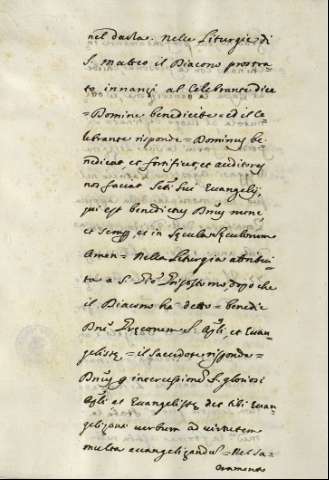 nel darla. Nelle Liturgie di
S. Matteo il Diacono prostra
to innanzi al Celebrante dice
= Domine benedicite = ed il Ce
lebrante risponde = Dominus be
nedicat et fortificet, et auditores
nos faciat Sui Evangelij,
qui est benedictus nunc
et semp, et in Sęcula Sęculorum
Amen = Nella Liturgia attribui
ta a S. Gio: Crisostomo, dopo che
il Diacono ha detto = benedic
Dne Pręconem S. Apli, et Evan
gelistę = il Sacerdote risponde =
intercessione S. gloriosi
Apli et Evangelistę det tibi Evan
gelizanti verbum ad virtutem
multa evangelizandi = Nel Sa
cramento